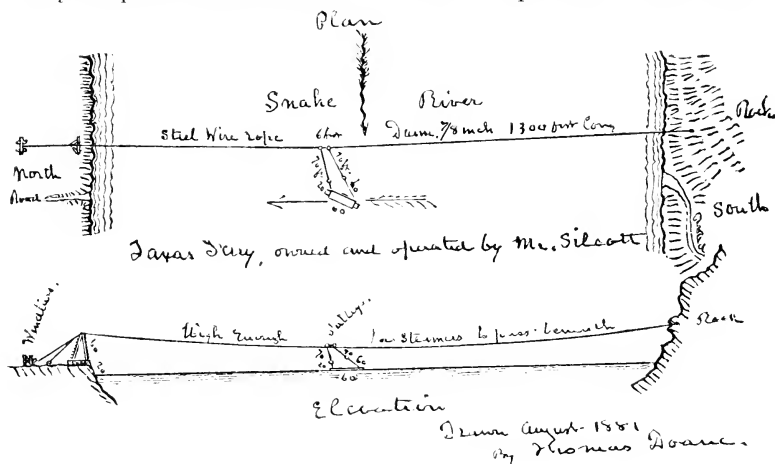 Plan
Snake River
Steel Wire rope 6 feet Diam. 7/8 inch 1300 feet long
Rock
North
Road
60
South
Road
Taxas Fery, owned and operated by Mr. Silcott
Windlass.
Pulleys.
High Enough for Steamers to pass beneath
Rock
40
20
60
60
Elevation
Drawn August 1881
By Thomas Doane.